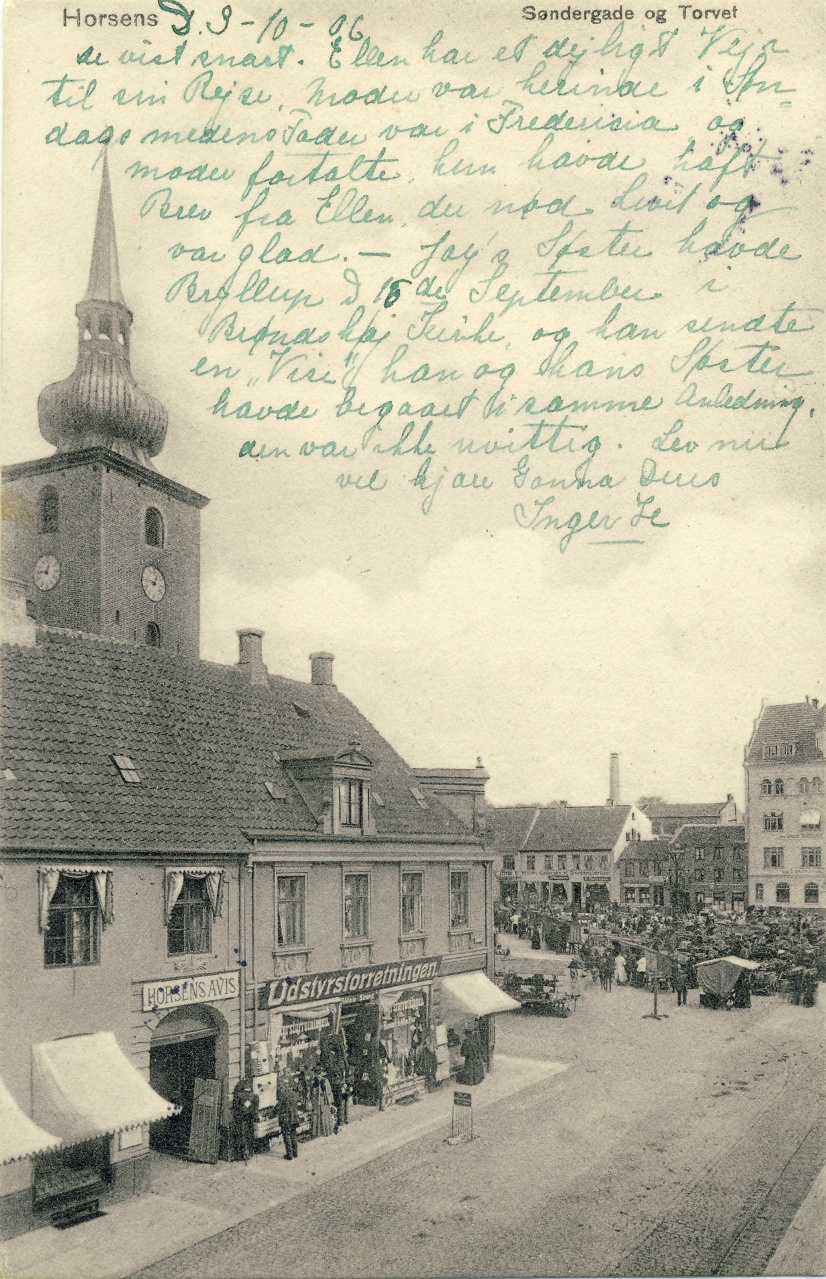 Horsens
Søndergade og Torvet
D. 9-10-06
de vist snart. Ellen har et dejligt Vejr
til sin Rejse, Moder var herinde i Søn-
dags medens Fader var i Fredericia og
moder fortalte, hun havde haft
Brev fra Ellen, der nød Livet og
var glad. — Jay's Søster havde
Bryllup d 15de September i
Brøndshøj Kirke, og han sendte
en "Vise", han og hans Søster
havde begaaet i samme Anledning,
den var ikke uvittig. Lev nu
vel kjære Gonna Deres
Inger
HORSENS AVIS
Udstyrsforretningen